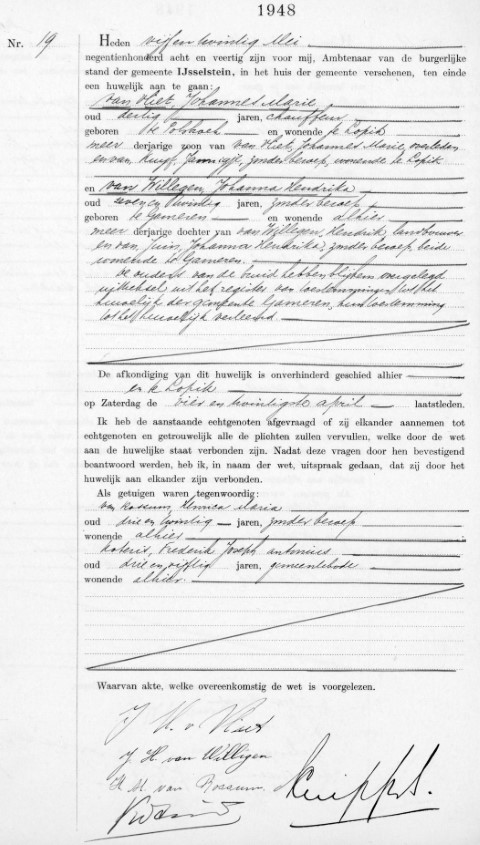 1948
Nr. 19 Heden vijf en twintig Mei
negentienhonderd acht en veertig zijn voor mij, Ambtenaar van de burgerlijke
stand der gemeente IJsselstein, in het huis der gemeente verschenen, ten einde
een huwelijk aan te gaan:
van Vliet, Johannes Marie
oud dertig jaren, chauffeur
geboren te Polsbroek en wonende te Lopik
meerderjarige zoon van van Vliet, Johannes Marie, overleden
en van Kruijf, Jannigje, zonder beroep, wonende te Lopik
en van Willegen, Johanna Hendrika
oud zeven en twintig jaren, zonder beroep
geboren te Gameren en wonende alhier
meerderjarige dochter van van Willegen, Hendrik, landbouwer
en van Tuin, Johanna Hendrika, zonder beroep, beide
wonende te Gameren.
De ouders van de bruid hebben blijkens overgelegd
uittreksel uit het register van toestemmingen tot het
huwelijk der gemeente Gameren, hun toestemming
tot het huwelijk verleend.
De afkondiging van dit huwelijk is onverhinderd geschied alhier
en te Lopik
op Zaterdag de vier en twintigste april laatstleden.
Ik heb de aanstaande echtgenoten afgevraagd of zij elkander aannemen tot
echtgenoten en getrouwelijk alle de plichten zullen vervullen, welke door de wet
aan de huwelijke staat verbonden zijn. Nadat deze vragen door hen bevestigend
beantwoord werden, heb ik, in naam der wet, uitspraak gedaan, dat zij door het
huwelijk aan elkander zijn verbonden.
Als getuigen waren tegenwoordig:
van Rossum, Maria
oud drie en twintig jaren, zonder beroep
wonende alhier
Frederik Joseph Antonius
oud drie en vijftig jaren, gemeentebode
wonende alhier.
Waarvan akte, welke overeenkomstig de wet is voorgelezen.
J M v Vliet
J. H. van Willigen
H M van Rossum